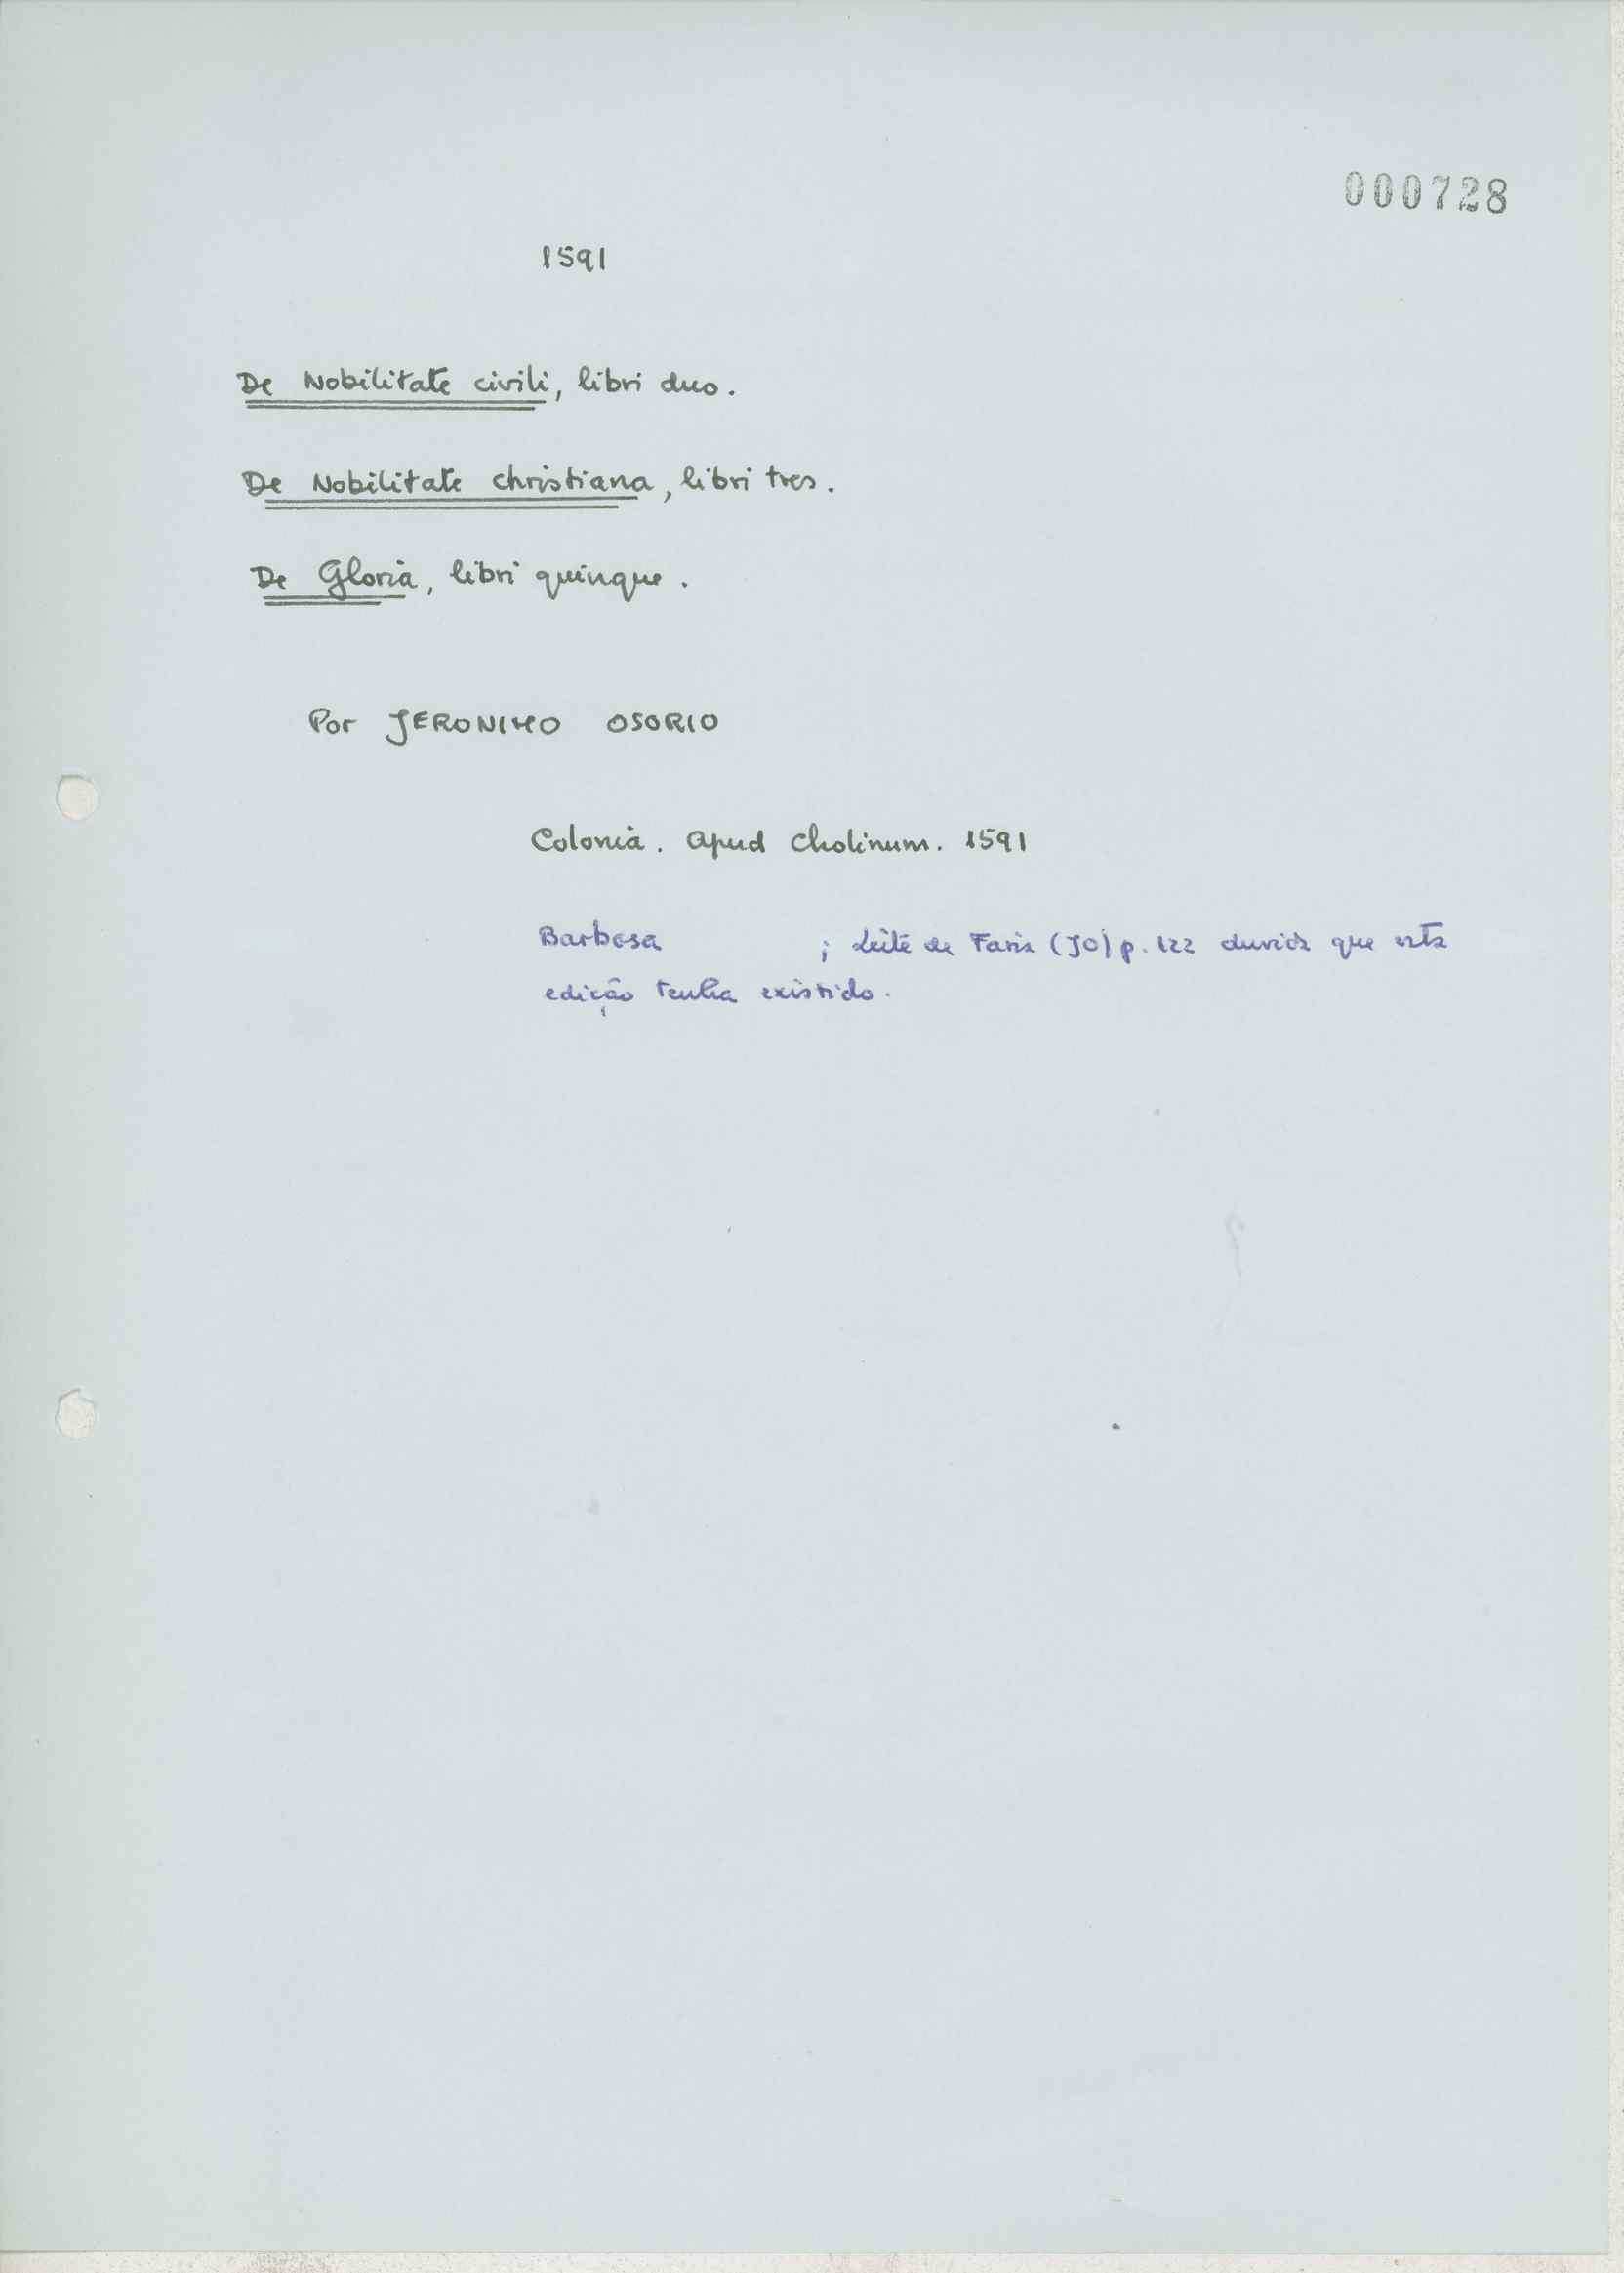 000728
1591
De Nobilitate civili, libri duo.
De Nobilitate christiana, libri tres.
De Gloria, libri quinque.
Por JERONIMO OSORIO
Colonia. Apud Cholinum. 1591
Barbosa ; Leite de Faria (JO) p. 122 duvida que esta
edição tenha existido.